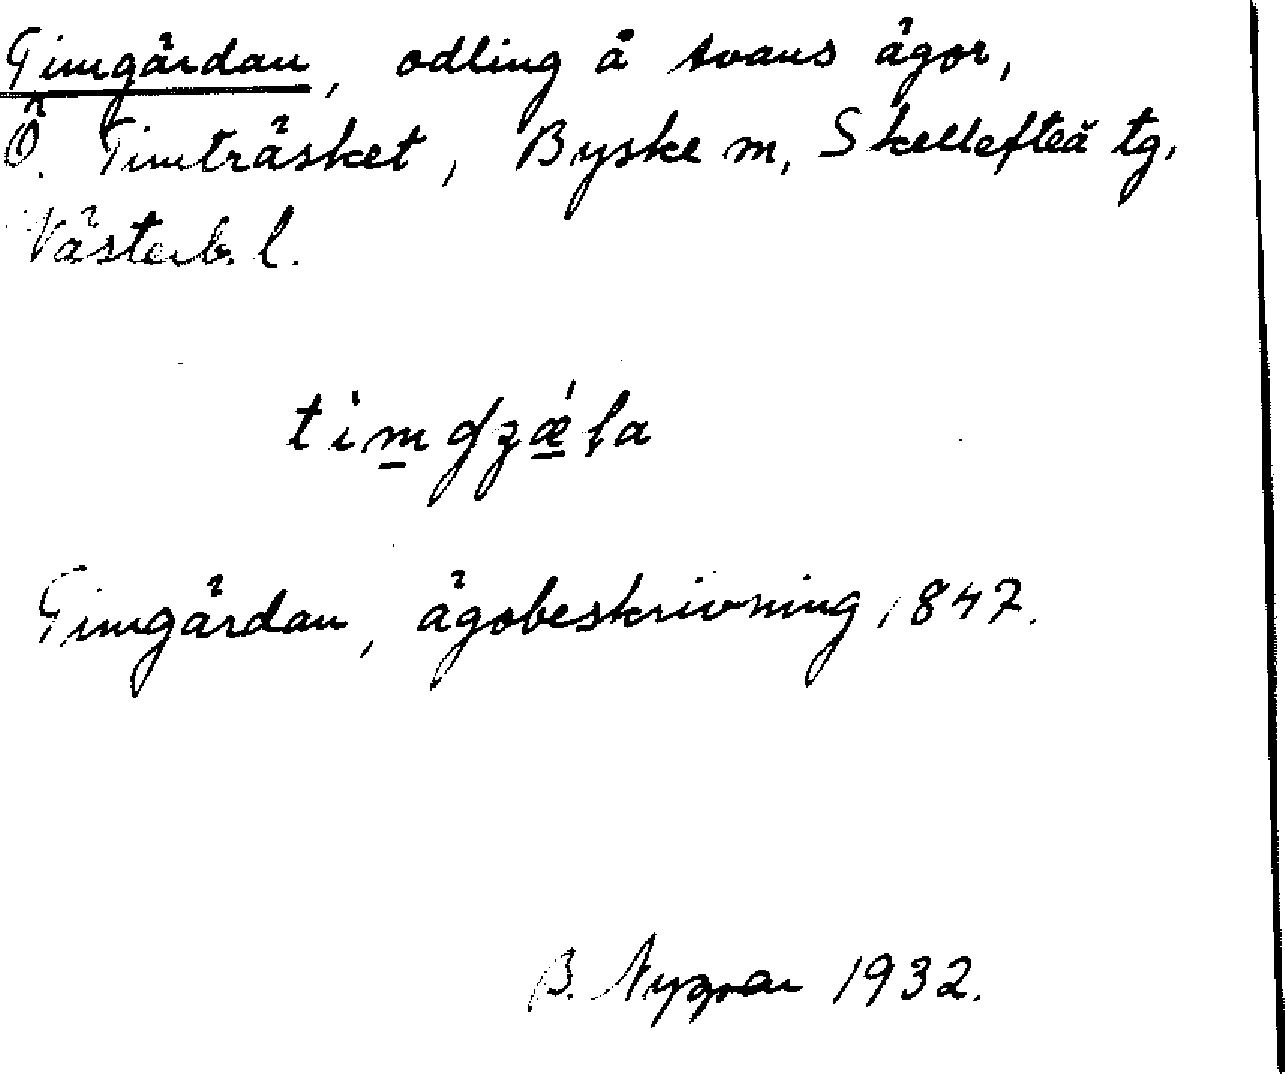 Timgärdan, odling å svans ägor,
Ö. Timträsket, Byske sn, Skellefteå tg,
Västerb. l.
Timgärdan, ägobeskrivning 1847.
B. Nygren 1932.